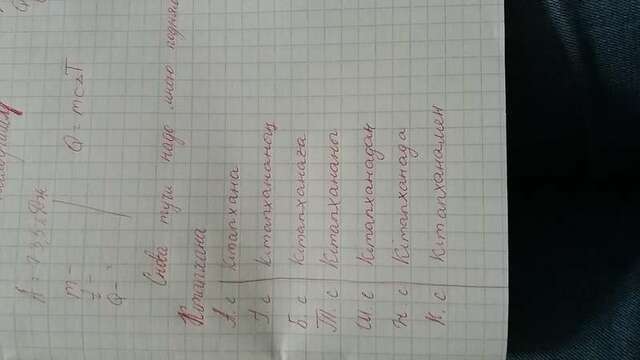 m –
Q –
Q = mcΔT
Снова тучи надо мною
Кітапхана
А. с Кітапхана
І. с Кітапхананың
Б. с Кітапханаға
Т. с Кітапхананы
Ш. с Кітапханадан
Ж. с Кітапханада
К. с Кітапханамен